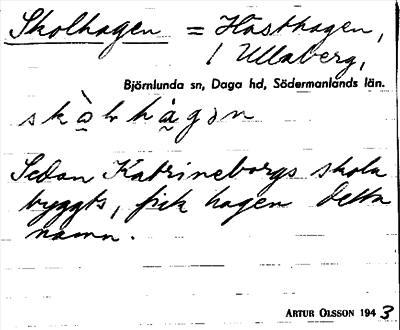 Skolhagen = Hästhagen,
/ Ullaberg,
Björnlunda sn, Daga hd, Södermanlands län.
Sedan Katrineborgs skola
byggts, fick hagen detta
namn.
ARTUR OLSSON 1943